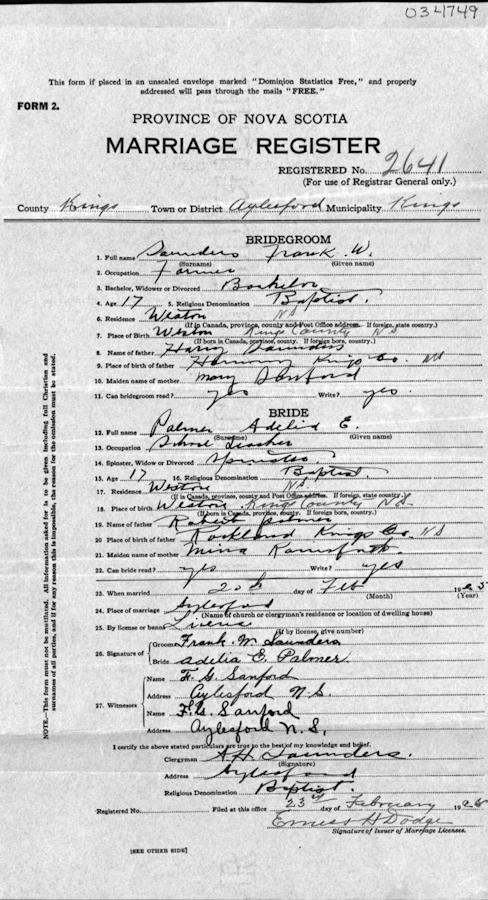 034749
This form if placed in an unsealed envelope marked "Dominion Statistics Free," and properly
addressed will pass through the mails "FREE."
FORM 2.
PROVINCE OF NOVA SCOTIA
MARRIAGE REGISTER
REGISTERED No. 2641
(For use of Registrar General only.)
County Kings Town or District Aylesford Municipality Kings
BRIDEGROOM
1. Full name Saunders Frank W.
(Surname) (Given name)
2. Occupation Farmer
3. Bachelor, Widower or Divorced Bachelor
4. Age 17 5. Religious Denomination Baptist.
6. Residence Weston NS
(If in Canada, province, county and Post Office address. If foreign, state country.)
7. Place of Birth Weston Kings County NS
(If born in Canada, province, county. If foreign born, country.)
8. Name of father Harry Saunders
9. Place of birth of father Kings Co. NS
10. Maiden name of mother Mary Sanford
11. Can bridegroom read? yes Write? yes.
BRIDE
12. Full name Palmer Adelia E.
(Surname) (Given name)
13. Occupation School Teacher
14. Spinster, Widow or Divorced Spinster
15. Age 17 16. Religious Denomination Baptist.
17. Residence Weston NS
(If in Canada, province, county and Post Office address. If foreign, state country.)
18. Place of Birth Weston Kings County N.S.
(If born in Canada, province, county. If foreign born, country.)
19. Name of father Robert Palmer
20. Place of birth of father Rockland Kings Co. NS
21. Maiden name of mother Mina
22. Can bride read? yes Write? yes
23. When married 20th day of Feb 1925
(Month) (Year)
24. Place of marriage Aylesford
(Name of church or clergyman's residence or location of dwelling house)
25. By license or banns License
(If by license, give number)
26. Signature of Groom Frank. W. Saunders
Bride Adelia E. Palmer.
27. Witnesses Name F. G. Sanford
Address Aylesford N.S.
Name F. G. Sanford
Address Aylesford N.S.
I certify the above stated particulars are true to the best of my knowledge and belief.
Clergyman A H Saunders.
(Signature)
Address Aylesford
Religious Denomination Baptist.
Registered No. Filed at this office 23rd day of February 1925
Ernest H Dodge
Signature of Issuer of Marriage Licenses.
[SEE OTHER SIDE]
NOTE.—This form must not be mutilated. All information asked for is to be given including full Christian and
surnames of all parties, and if for any reason this is impossible, the reason for the omission must be stated.